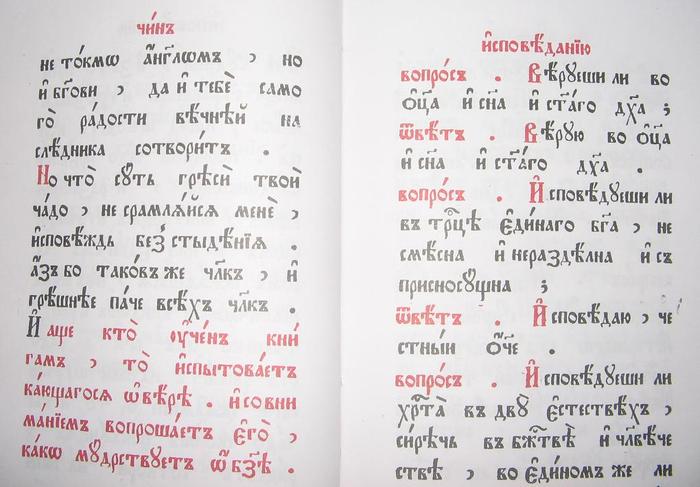 чи́нъ
не то́кмѡ а҆́нг҃лѡмъ , но
и҆ бг҃ови , да и҆ тебѐ само
го̀ ра́дости вѣ́чнѣй на
слѣ́дника сотвори́тъ .
Но что̀ сꙋ́ть грѣсѝ твоѝ
ча́до , не срамлѧ́йсѧ менѐ ,
и҆сповѣ́ждь без̾ стыдѣ́нїѧ .
а҆́зъ бо тако́въ же чл҃къ , и҆
грѣ́шнѣе па́че всѣ́хъ чл҃къ .
И҆ аще кто̀ ᲂу҆че́нъ кни́
гамъ , то̀ и҆спытова́етъ
ка́ющагосѧ ѡ҆ вѣ́рѣ . и҆ со вни
ма́нїемъ вопроша́етъ є҆го̀ ,
ка́кѡ мꙋ́дрствꙋетъ ѡ҆ бз҃ѣ .
и҆сповѣ́данїю
вопро́съ . Вѣ́рꙋеши ли во
ѻ҆ц҃а и҆ сн҃а и҆ ст҃а́го дх҃а ;
ѿвѣ́тъ . Вѣ́рꙋю во ѻ҆ц҃а
и҆ сн҃а и҆ ст҃а́го дх҃а .
вопро́съ . И҆сповѣ́дꙋеши ли
въ трⷪ҇цѣ є҆ди́наго бг҃а , не
смѣ́сна и҆ нераздѣ́лна и҆ съ
присносꙋ́щна ;
ѿвѣ́тъ . И҆сповѣ́даю , че
стны́и ѻ҆́ч҃е .
вопро́съ . И҆сповѣ́дꙋеши ли
хрⷭ҇та̀ въ двꙋ̀ є҆стествѣ́хъ ,
си́рѣчь въ бж҃твѣ̀ и҆ чл҃вѣче
ствѣ̀ , во є҆ди́номъ же ли